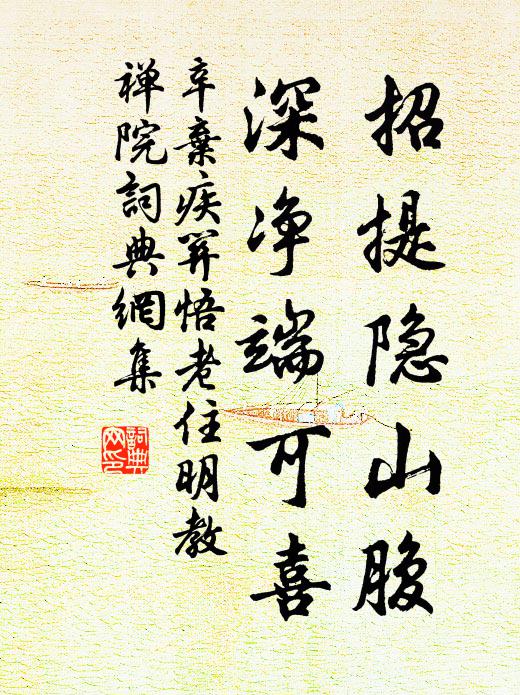 招提隐山腹
深净端可喜
辛棄疾羿悟老住明教
禅院詞典網集
詞典网印